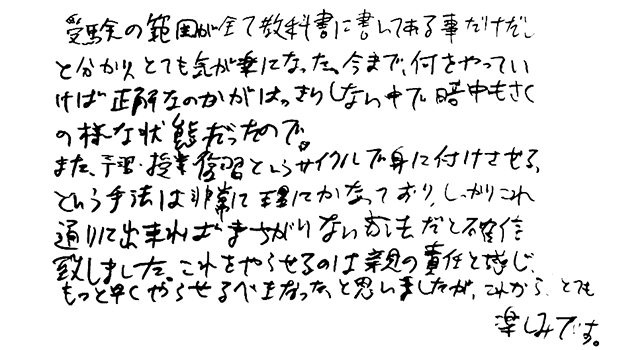 受験の範囲が全て教科書に書いてある事だけだ
と分かり、とても気が楽になった。今まで、何をやってい
けば正解なのかがはっきりしない中で暗中もさく
の様な状態だったので。
また、予習・授業・復習というサイクルで身に付けさせる、
という手法は非常に理にかなっており、しっかりこれ
通りに出来ればまちがいない方法だと確信
致しました。これをやらせるのは親の責任と感じ、
もっと早くやらせるべきだった、と思いましたが、これから、とても
楽しみです。